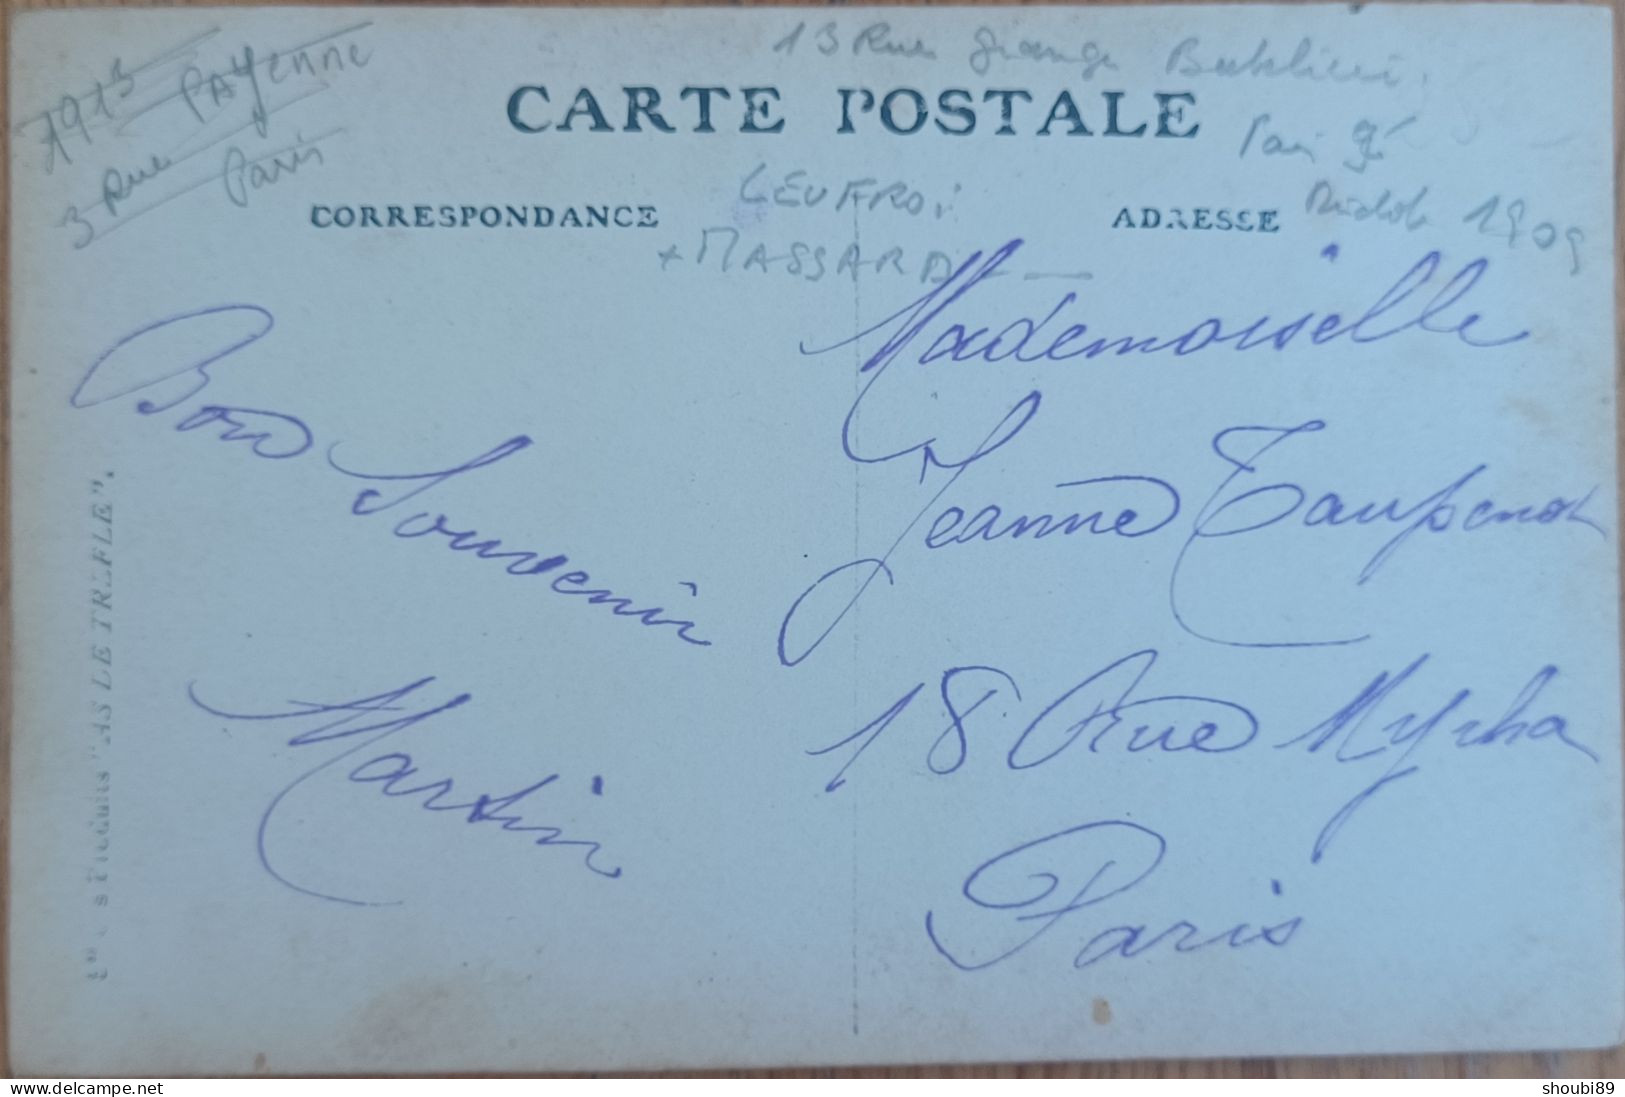 1913
3 Rue PAYenne
Paris
13 Rue Grange Batelière
CARTE POSTALE
Paris 9è
CORRESPONDANCE
ADRESSE
1909
+ MASSARD
Mademoiselle
Jeanne Taupenot
18 Rue Myrha
Paris
Bon Souvenir
Martin
Produits "AS LE TREFLE".
shoubi89